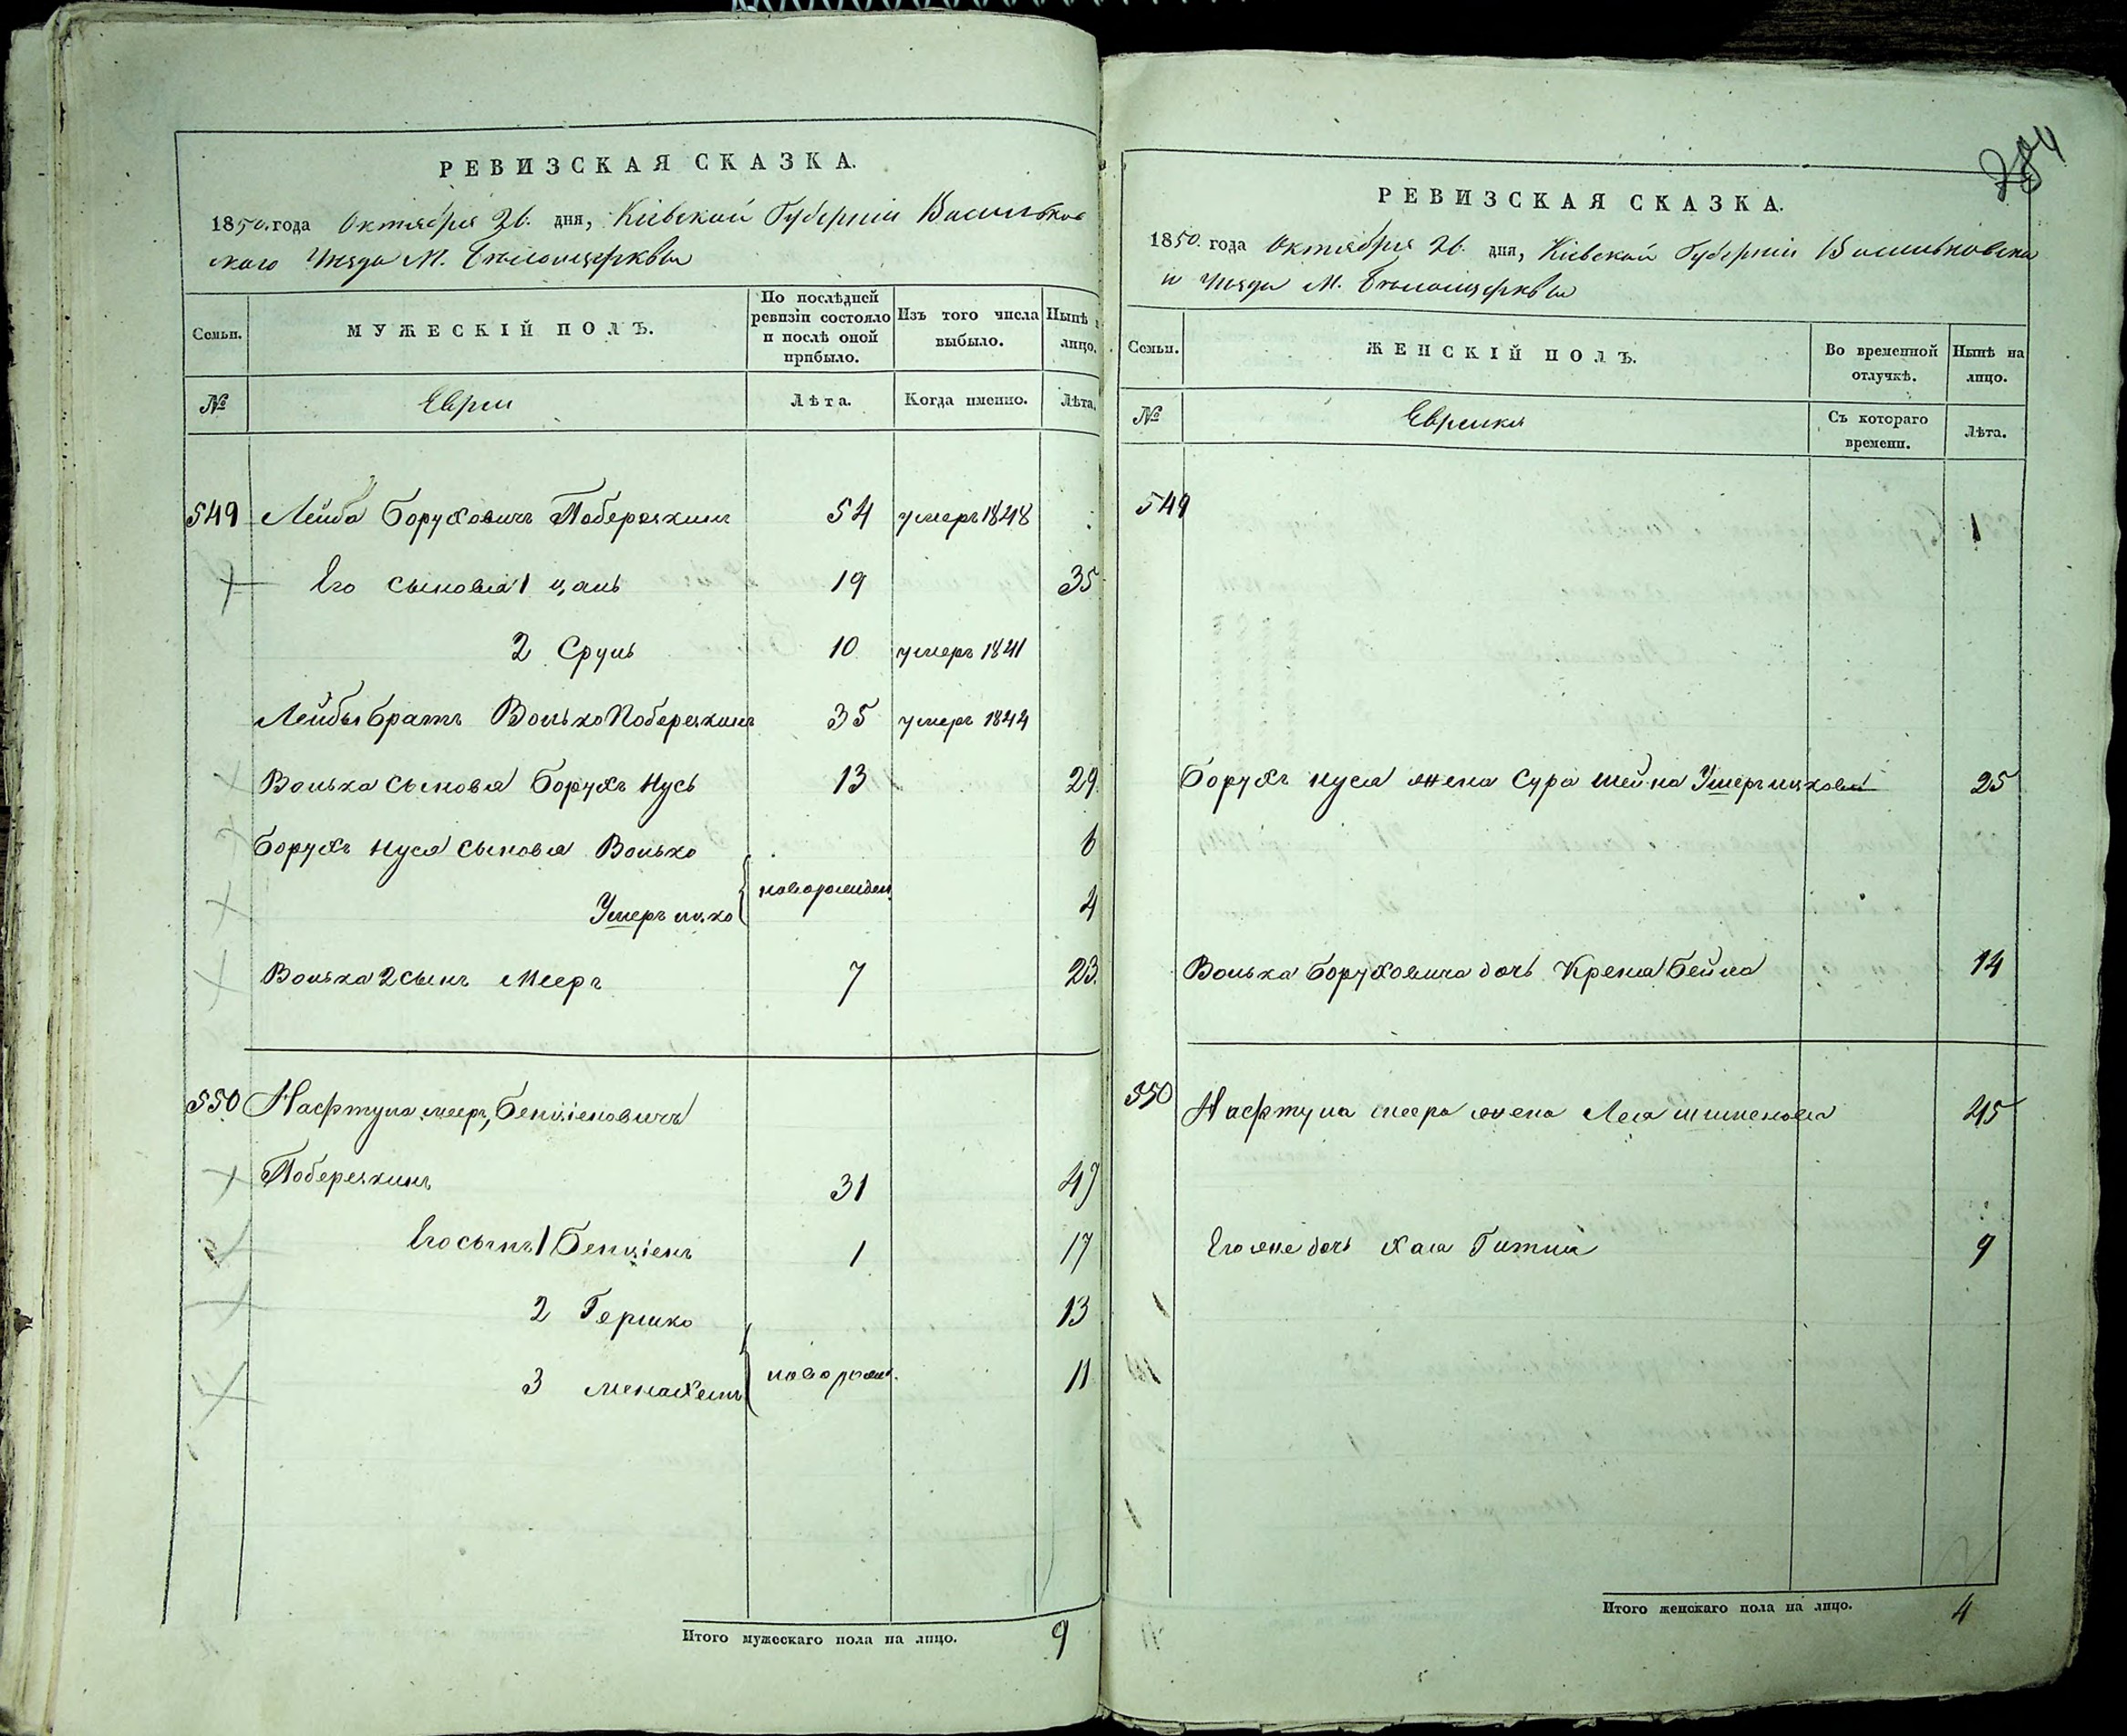 РЕВИЗСКАЯ СКАЗКА.
1850. года Октября 26. дня, Кіевской Губерніи Васильков
скаго Уезда М. Белоицеркви
Семьи.
МУЖЕСКІЙ ПОЛЪ.
По послѣдней ревизіи состояло и послѣ оной прибыло.
Изъ того числа выбыло.
Нынѣ
лицо.
№
Евреи
Лѣта.
Когда именно.
Лѣта.
549 Лейба Боруховичъ Побережкинъ 54 умеръ 1848
Его сыновья 1 Цаль 19 35
2 Сруль 10 умеръ 1841
Лейбы братъ Волько Побережкинъ 35 умеръ 1844
Волька сыновья Борухъ Нусь 13 29
Борухъ Нуся сыновья Волько 6
Умеръ ицко новорожден. 4
Волька 2 сынъ Мееръ 7 23.
550 Нафтула мееръ, Бенціеновичъ
Побережкинъ 31 47
Его сынъ 1 Бенціенъ 1 17
2 Гершко 13
3 Менахемъ новорожд. 11
Итого мужескаго пола на лицо. 9
284
РЕВИЗСКАЯ СКАЗКА.
1850. года Октября 26. дня, Кіевской Губерніи Васильковска
Уезда М. Белоицеркви
Семьи.
ЖЕНСКІЙ ПОЛЪ.
Во временной отлучкѣ.
Нынѣ на лицо.
№
Еврейки
Съ котораго времени.
Лѣта.
549
Борухъ нуся жена Сура Шейна Умеръ ицкова 25
Волька Боруховича дочь Крейна Бейла 14
550 Нафтула меера жена Лея шименова 45
Его же дочь Хая Гитля 9
Итого женскаго пола на лицо. 4